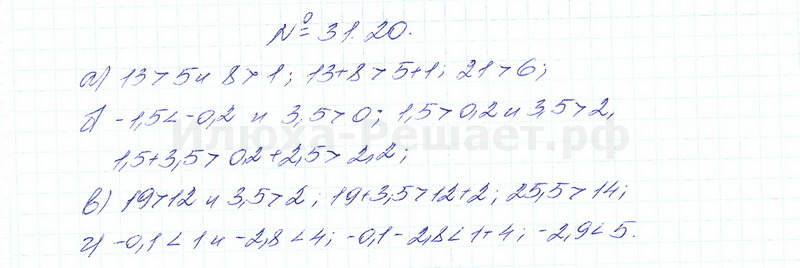 № 31.20.
а) 13 > 5 и 8 > 1; 13+8 > 5+1; 21 > 6;
б) -1,5 < -0,2 и 3,5 > 0; 1,5 > 0,2 и 3,5 > 2,
Илюха-Решает.рф
1,5+3,5 > 0,2+2,5 > 2,2;
в) 19 > 12 и 3,5 > 2; 19+3,5 > 12+2; 25,5 > 14;
г) -0,1 < 1 и -2,8 < 4; -0,1-2,8 < 1+4; -2,9 < 5.